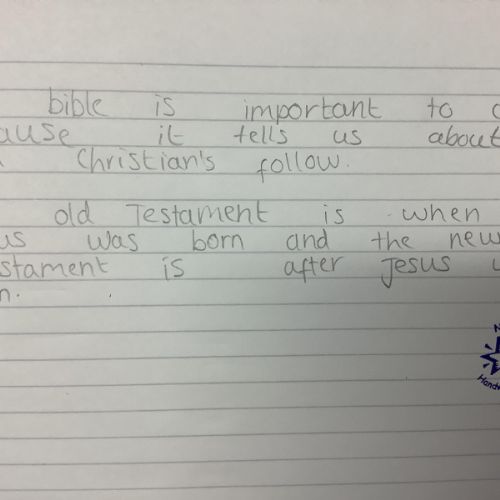 bible is important to
ause it tells us about
Christian's follow.
old Testament is when
us was born and the new
stament is after Jesus
n.